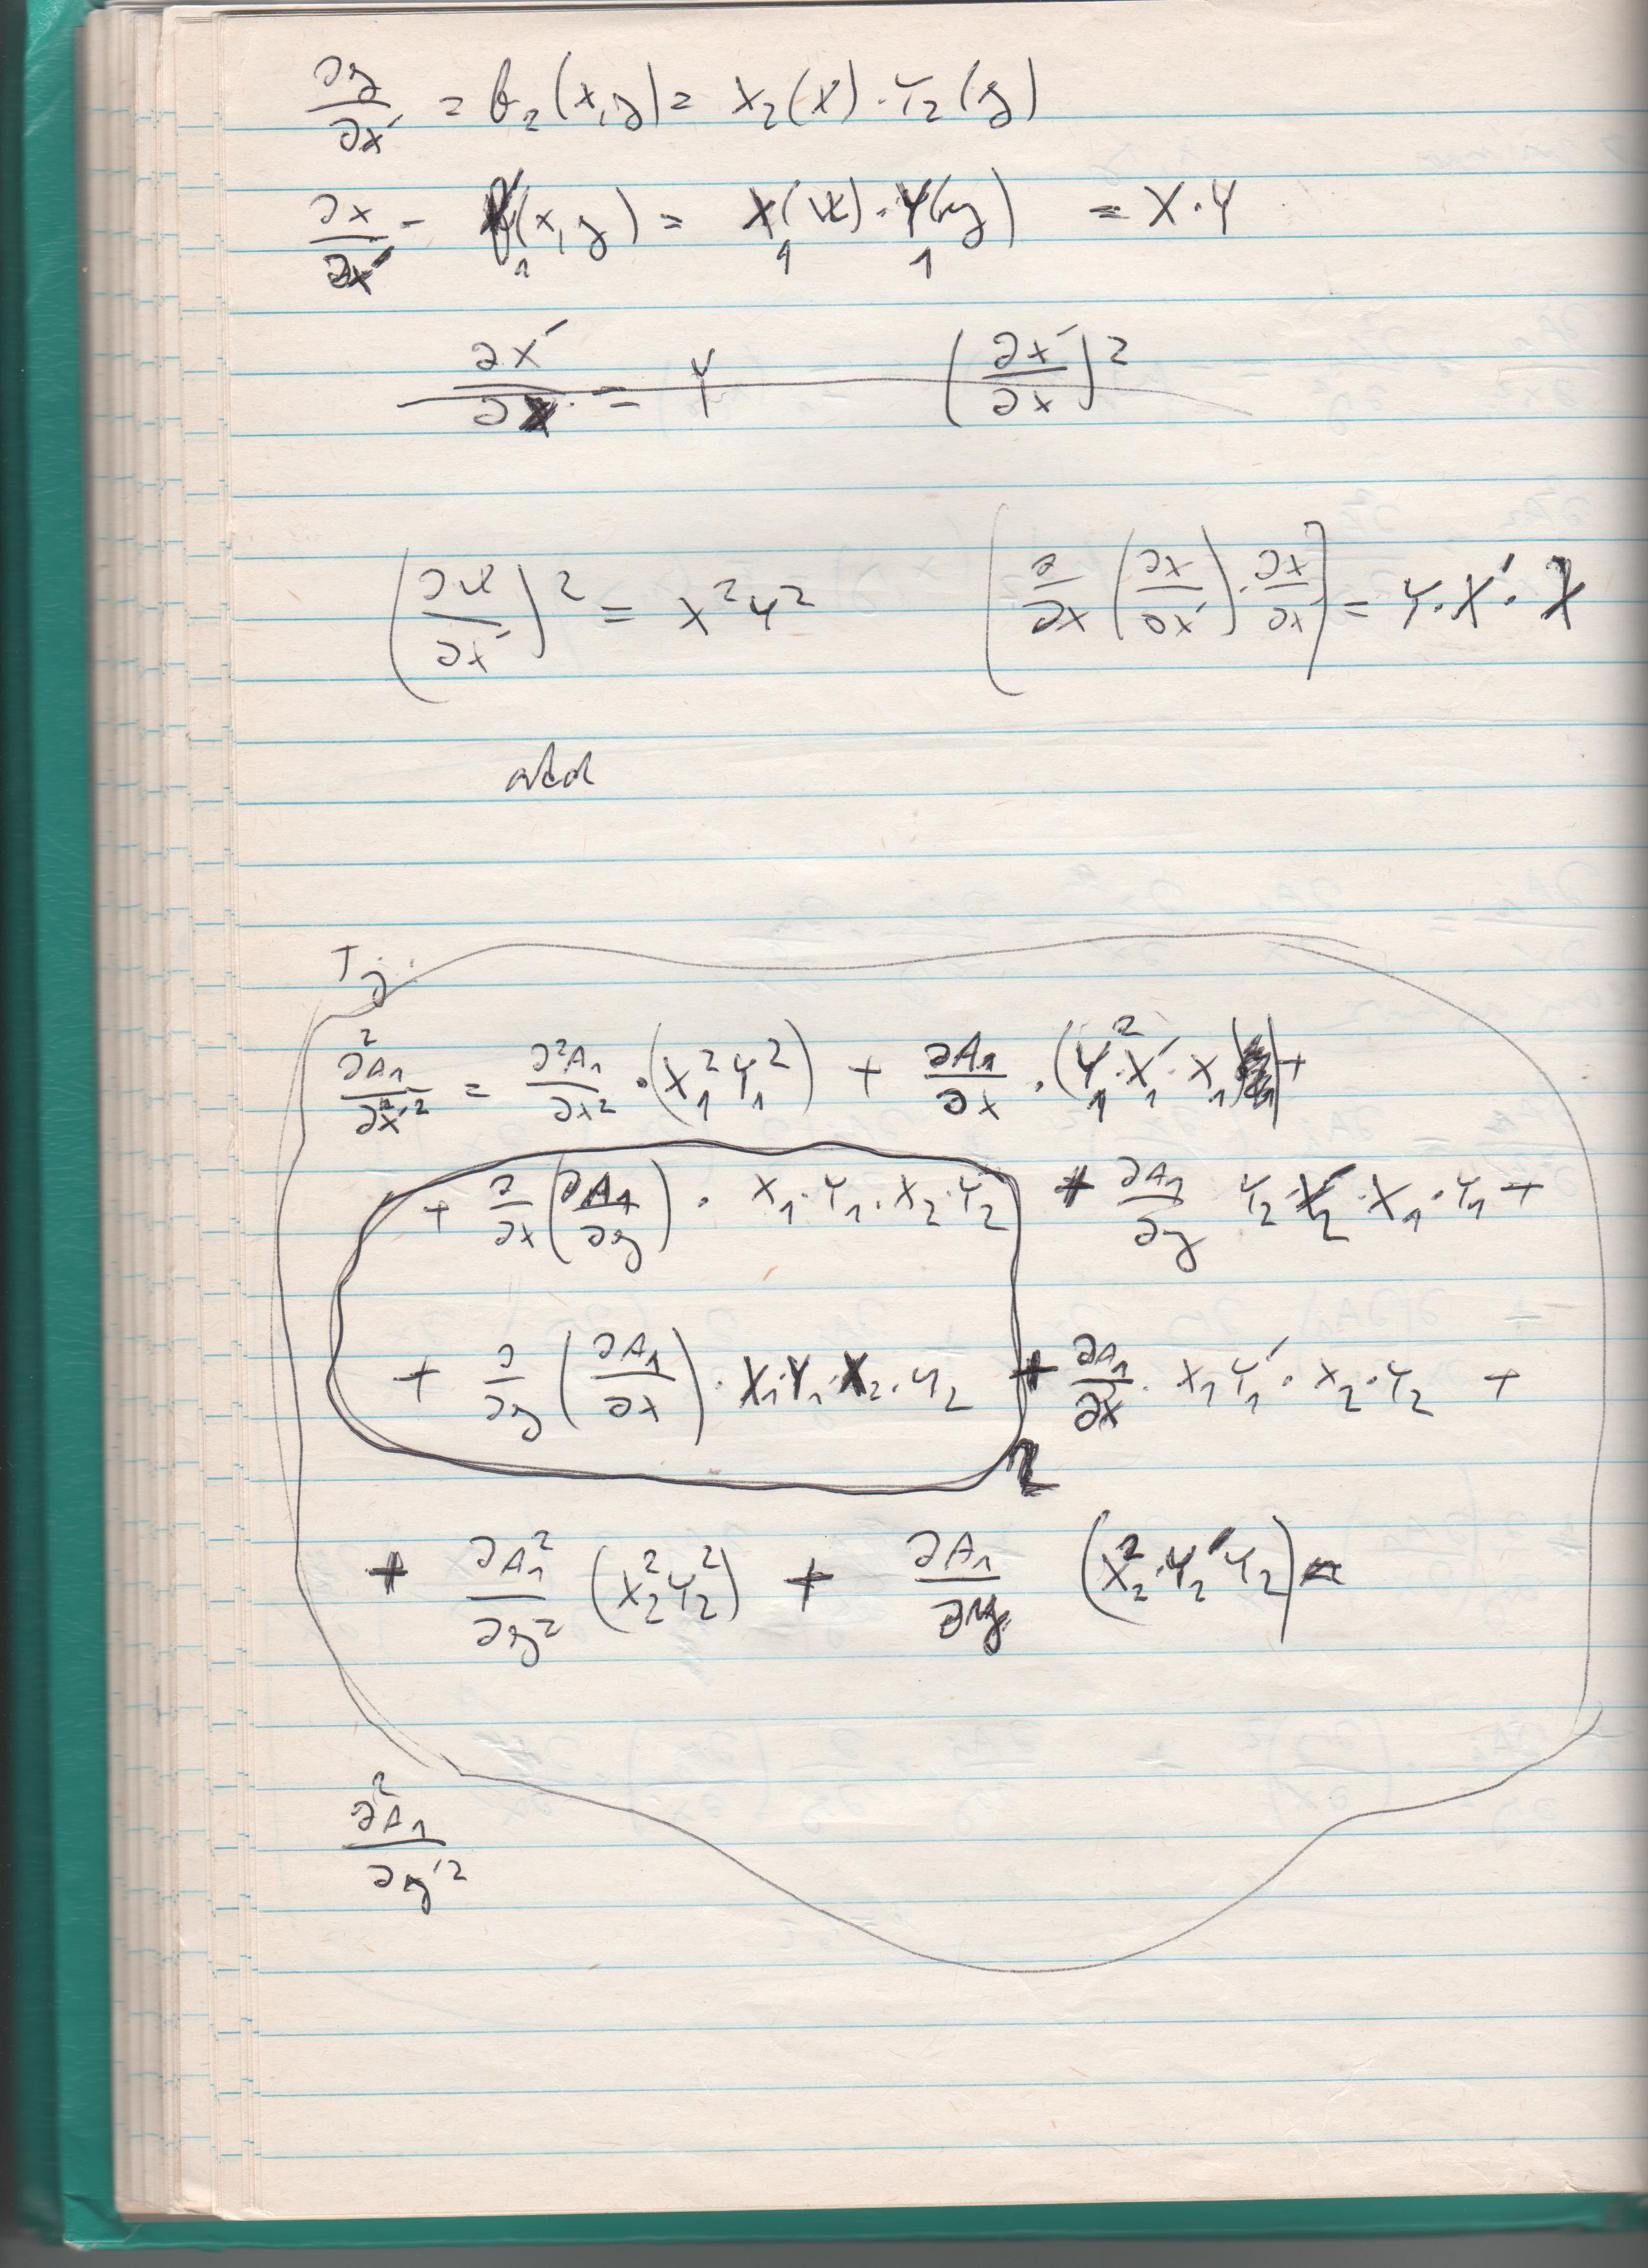 ∂y/∂x' = f₂(x,y) = X₂(x)·Y₂(y)
∂x/∂x' = f₁(x,y) = X₁(x)·Y₁(y) = X·Y
∂x'/∂x = Y (∂x'/∂x)²
(∂x/∂x')² = X²Y² [∂/∂x (∂x/∂x')·∂x/∂x'] = Y·X'·X
atd
Tj.
∂²A₁/∂x'² = ∂²A₁/∂x² · (X₁²Y₁²) + ∂A₁/∂x · (Y₁²·X₁'·X₁) +
+ ∂/∂x (∂A₁/∂y) · X₁·Y₁·X₂·Y₂ + ∂A₁/∂y Y₂·X₂'·X₁·Y₁ +
+ ∂/∂y (∂A₁/∂x) · X₁·Y₁·X₂·Y₂ + ∂A₁/∂x · X₁Y₁'·X₂·Y₂ +
+ ∂A₁²/∂y² (X₂²Y₂²) + ∂A₁/∂y (X₂²·Y₂'Y₂)
∂²A₁/∂y'²